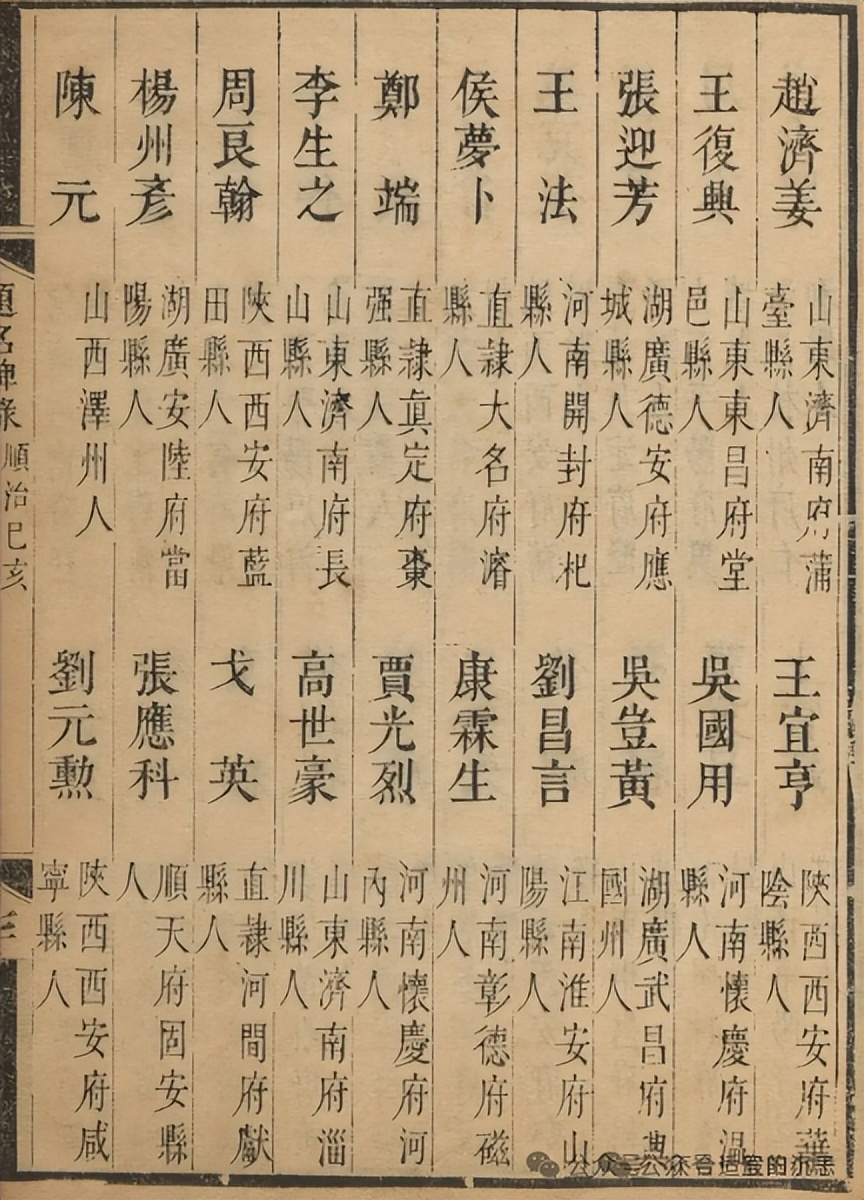 趙濟姜
山東濟南府蒲
臺縣人
王宜亨
陝西西安府華
陰縣人
王復興
山東東昌府堂
邑縣人
吳國用
河南懷慶府溫
縣人
張迎芳
湖廣德安府應
城縣人
吳豈黃
湖廣武昌府興
國州人
王法
河南開封府杞
縣人
劉昌言
江南淮安府山
陽縣人
侯夢卜
直隷大名府濬
縣人
康霖生
河南彰德府磁
州人
鄭端
直隷眞定府棗
强縣人
賈光烈
河南懷慶府河
內縣人
李生之
山東濟南府長
山縣人
高世豪
山東濟南府淄
川縣人
周良翰
陝西西安府藍
田縣人
戈英
直隷河間府獻
縣人
楊州彥
湖廣安陸府當
陽縣人
張應科
順天府固安縣
人
陳元
山西澤州人
劉元勲
陝西西安府咸
寧縣人
題名碑錄
順治己亥
公众号